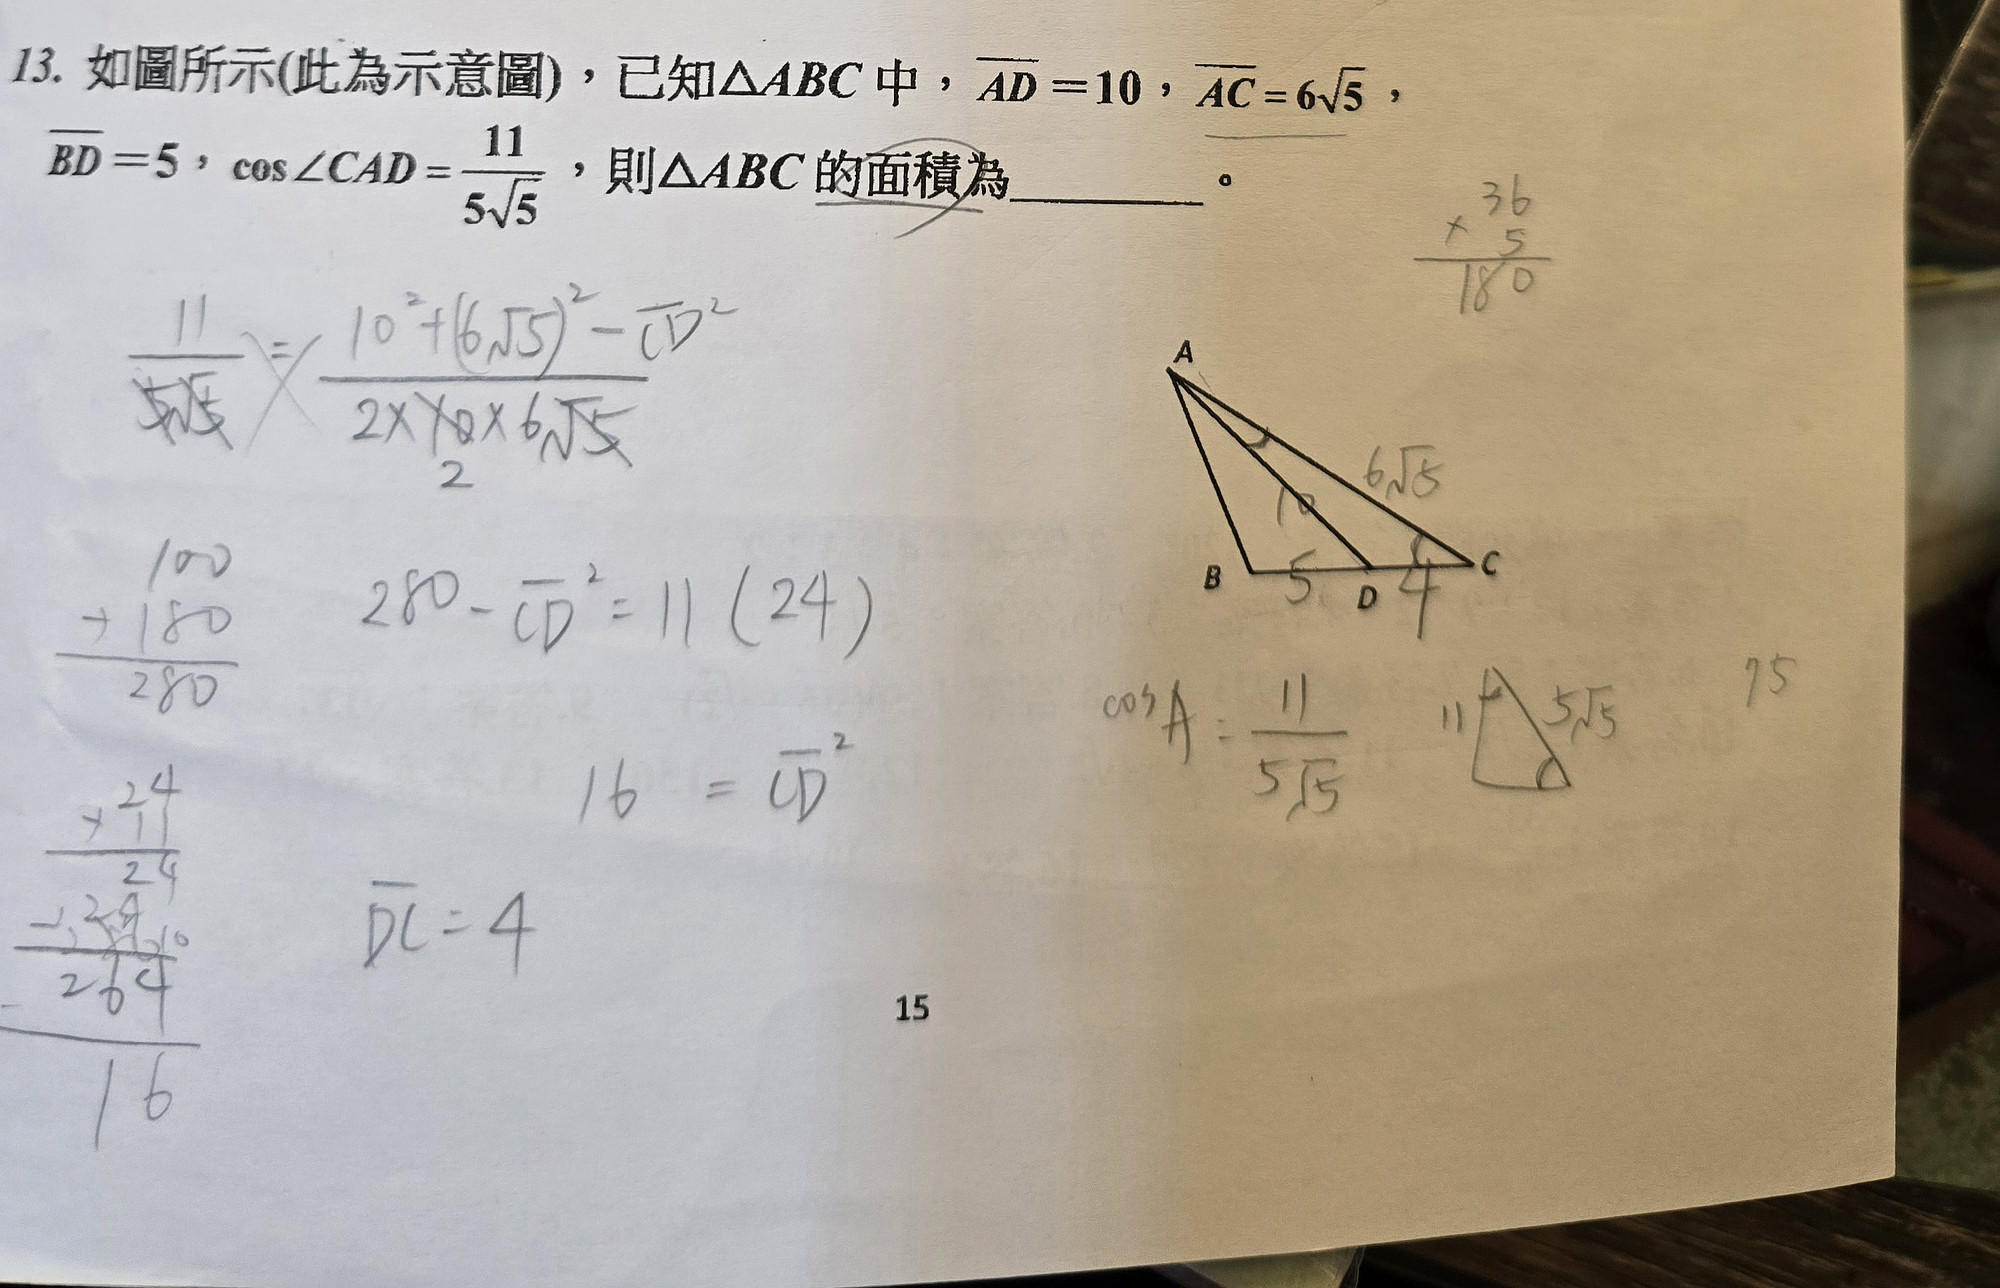 13. 如圖所示(此為示意圖)，已知△ABC 中，AD＝10，AC = 6√5，
BD＝5，cos∠CAD = 11/5√5，則△ABC 的面積為________。
36
× 5
180
11/5√5 = 10²+(6√5)²−CD²/2×10×6√5
2
A
6√5
10
B 5 D 4 C
100
+ 180
280
280 − CD² = 11 (24)
cosA = 11/5√5
11 5√5
75
16 = CD²
24
× 11
24
24
264
16
DC = 4
15